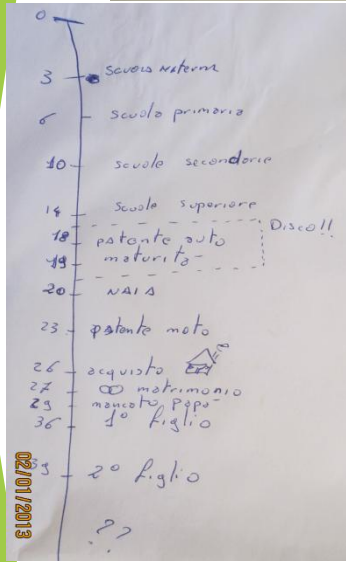 0
3 SCUOLA MATERNA
6 scuola primaria
10 scuole secondarie
14 scuola superiore
Disco!!
18 patente auto
19 maturità
20 NAIA
23 patente moto
26 acquisto
27 matrimonio
29 mancato papà
36 1° figlio
39 2° figlio
??
02/01/2013